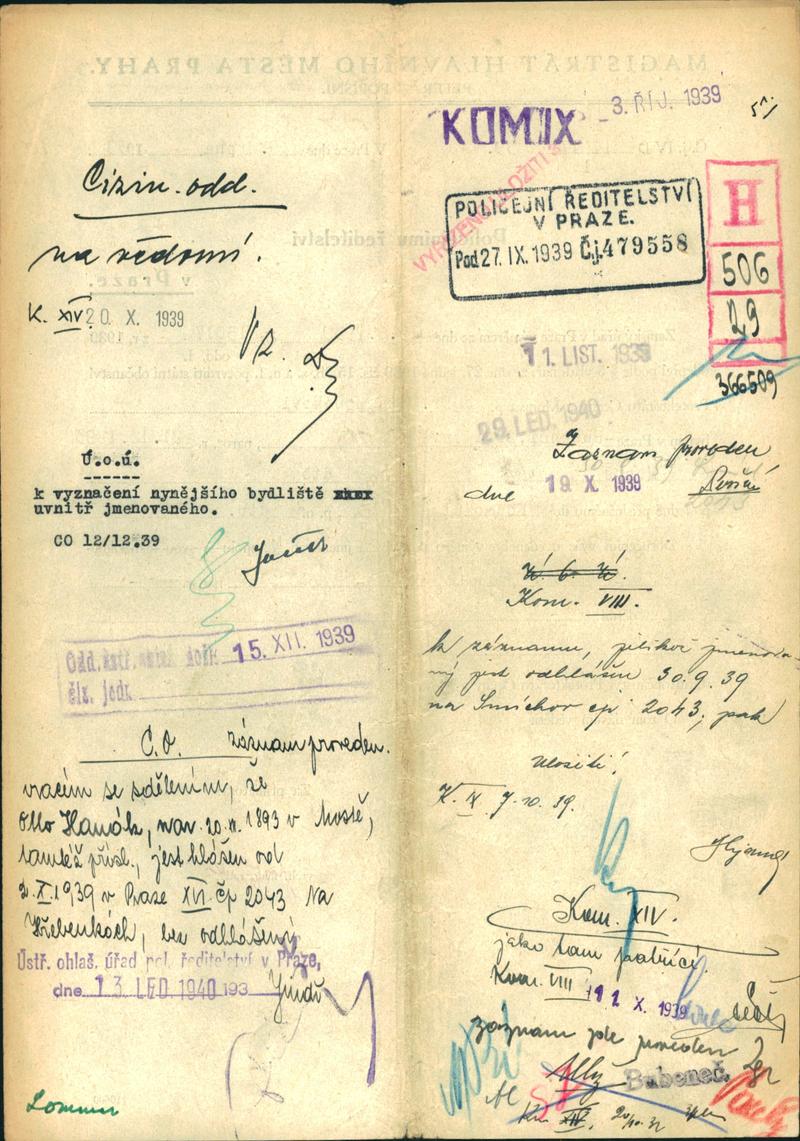 Cizin. odd.
na vědomí.
K. XIV 20 X. 1939
Ú.o.ú.
k vyznačení nynějšího bydliště
uvnitř jmenovaného.
CO 12/12.39
15. XII. 1939
čís. jedn.
C.O. záznam proveden.
vracím se sdělením, že
Otto Hanák, nar. 20. 1893 v Mostě,
tamtéž přísl., jest hlášen od
2.X.1939 v Praze XVI. čp 2043 Na
Hřebenkách, bez odhlášení
Ústř. ohlaš. úřad pol. ředitelství v Praze,
dne 13 LED. 1940 193
KOM IX - 3. ŘÍJ. 1939
POLICEJNÍ ŘEDITELSTVÍ
V PRAZE.
Pod 27. IX. 1939 Čj. 479558
H
506
29
366509
11. LIST. 1939
29. LED. 1940
Záznam proveden
dne 19 X. 1939
Kom. VIII.
k záznamu, jelikož jmenova-
ný jest odhlášen 30.9.39
na Smíchov čp 2043, pak
uložiti!
K. IX 7.10.39.
Kom. XIV.
jako tam patřící.
Kom. VIII 11 X. 1939
záznam zde proveden
Bubeneč.